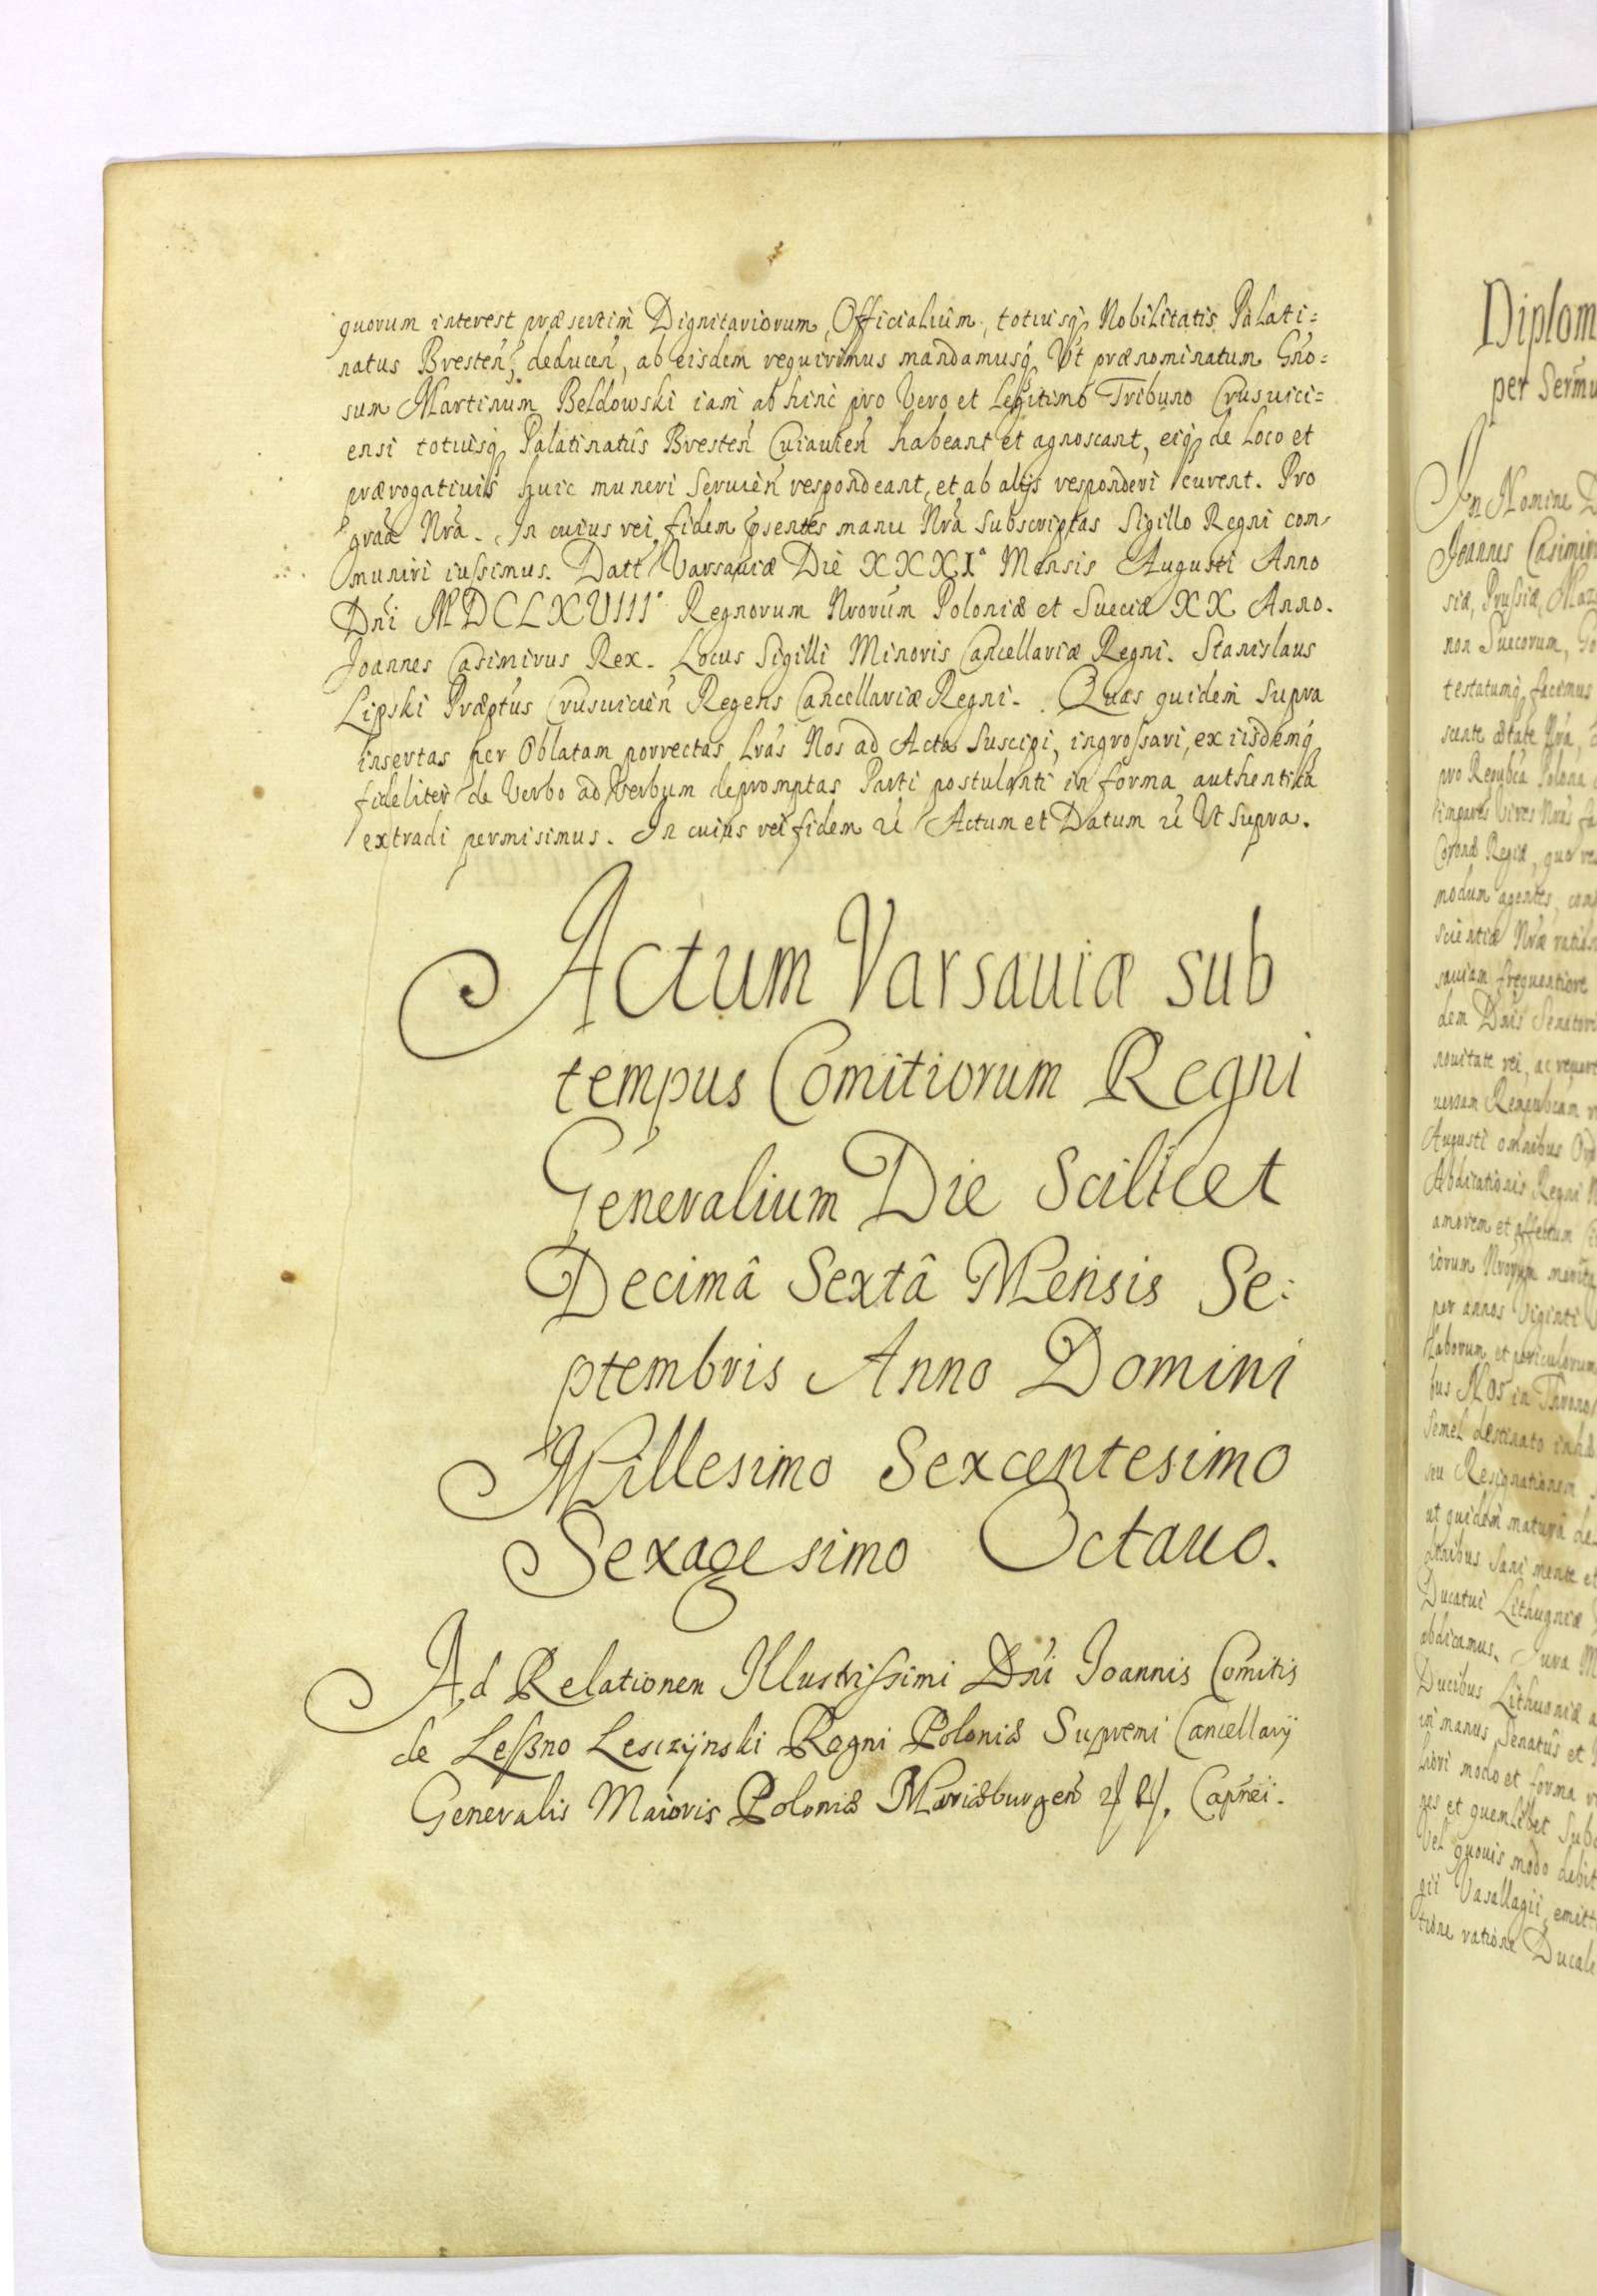 quorum interest præsertim Dignitariorum, Officialium, totiusq Nobilitatis Palati=
natus Bresten, deducen, ab eisdem requirimus mandamusq, Vt prænominatum Gno=
sum Martinum Beldowski iam abhinc pro Vero et Legitimo Tribuno Crusuici=
ensi totiusq Palatinatûs Bresten Cuiauien habeant et agnoscant, eiq de Loco et
prærogatiuis huic muneri Seruien respondeant, et ab alijs responderi curent. Pro
graa Nra. In cuius rei fidem psentes manu Nra Subscriptas Sigillo Regni com
muniri iussimus. Datt Varsauiæ Die XXXIa Mensis Augusti Anno
Dni MDCLXVIII° Regnorum Nrorum Poloniæ et Sueciæ XX Anno.
Joannes Casimirus Rex. Locus Sigilli Minoris Cancellariæ Regni. Stanislaus
Lipski Præptus Crusuicien Regens Cancellariæ Regni. Quas quidem Supra
insertas per Oblatam porrectas Lras Nos ad Acta Suscipi, ingrossari, ex iisdemq
fideliter de Verbo ad Verbum depromptas Parti postulanti in forma authentica
extradi permisimus. In cuius rei fidem Actum et Datum Vt Supra.
Actum Varsauiæ sub
tempus Comitiorum Regni
Generalium Die Scilicet
Decimâ Sextâ Mensis Se:
ptembris Anno Domini
Millesimo Sexcentesimo
Sexagesimo Octauo.
Ad Relationem Illustrissimi Dni Joannis Comitis
de Leßno Lesczÿnski Regni Poloniæ Supremi Cancellarÿ
Generalis Maioris Poloniæ Mariæburgen Capnei.
Diplom
per Sermu
In Nomine D
Joannes Casimir
siæ, Prussiæ, Maz
non Suecorum, Go
testatumq facimus
pro Repubca Polona
Coronæ Regiæ, quo
modum agentes, com
scientiæ Nræ ration
sauiam frequentiore
dem Dnis Senatori
nouitate rei, ac
uersam Rempubcam
Augusti omnibus Ord
Abdicationis Regni
amorem et affectum
per annos Viginti
laborum et periculorum
bus Nos in Throno
Semel destinato
seu Resignationem
ut quidem matura de
omnibus Sani mente et
Ducatui Lithuaniæ
abdicamus. Jura M
Ducibus Lithuaniæ a
in manus Senatûs et
liori modo et forma
nes et quemlibet Sub
Vel quouis modo debit
gii Vasallagii, emitt
tione ratione Ducale